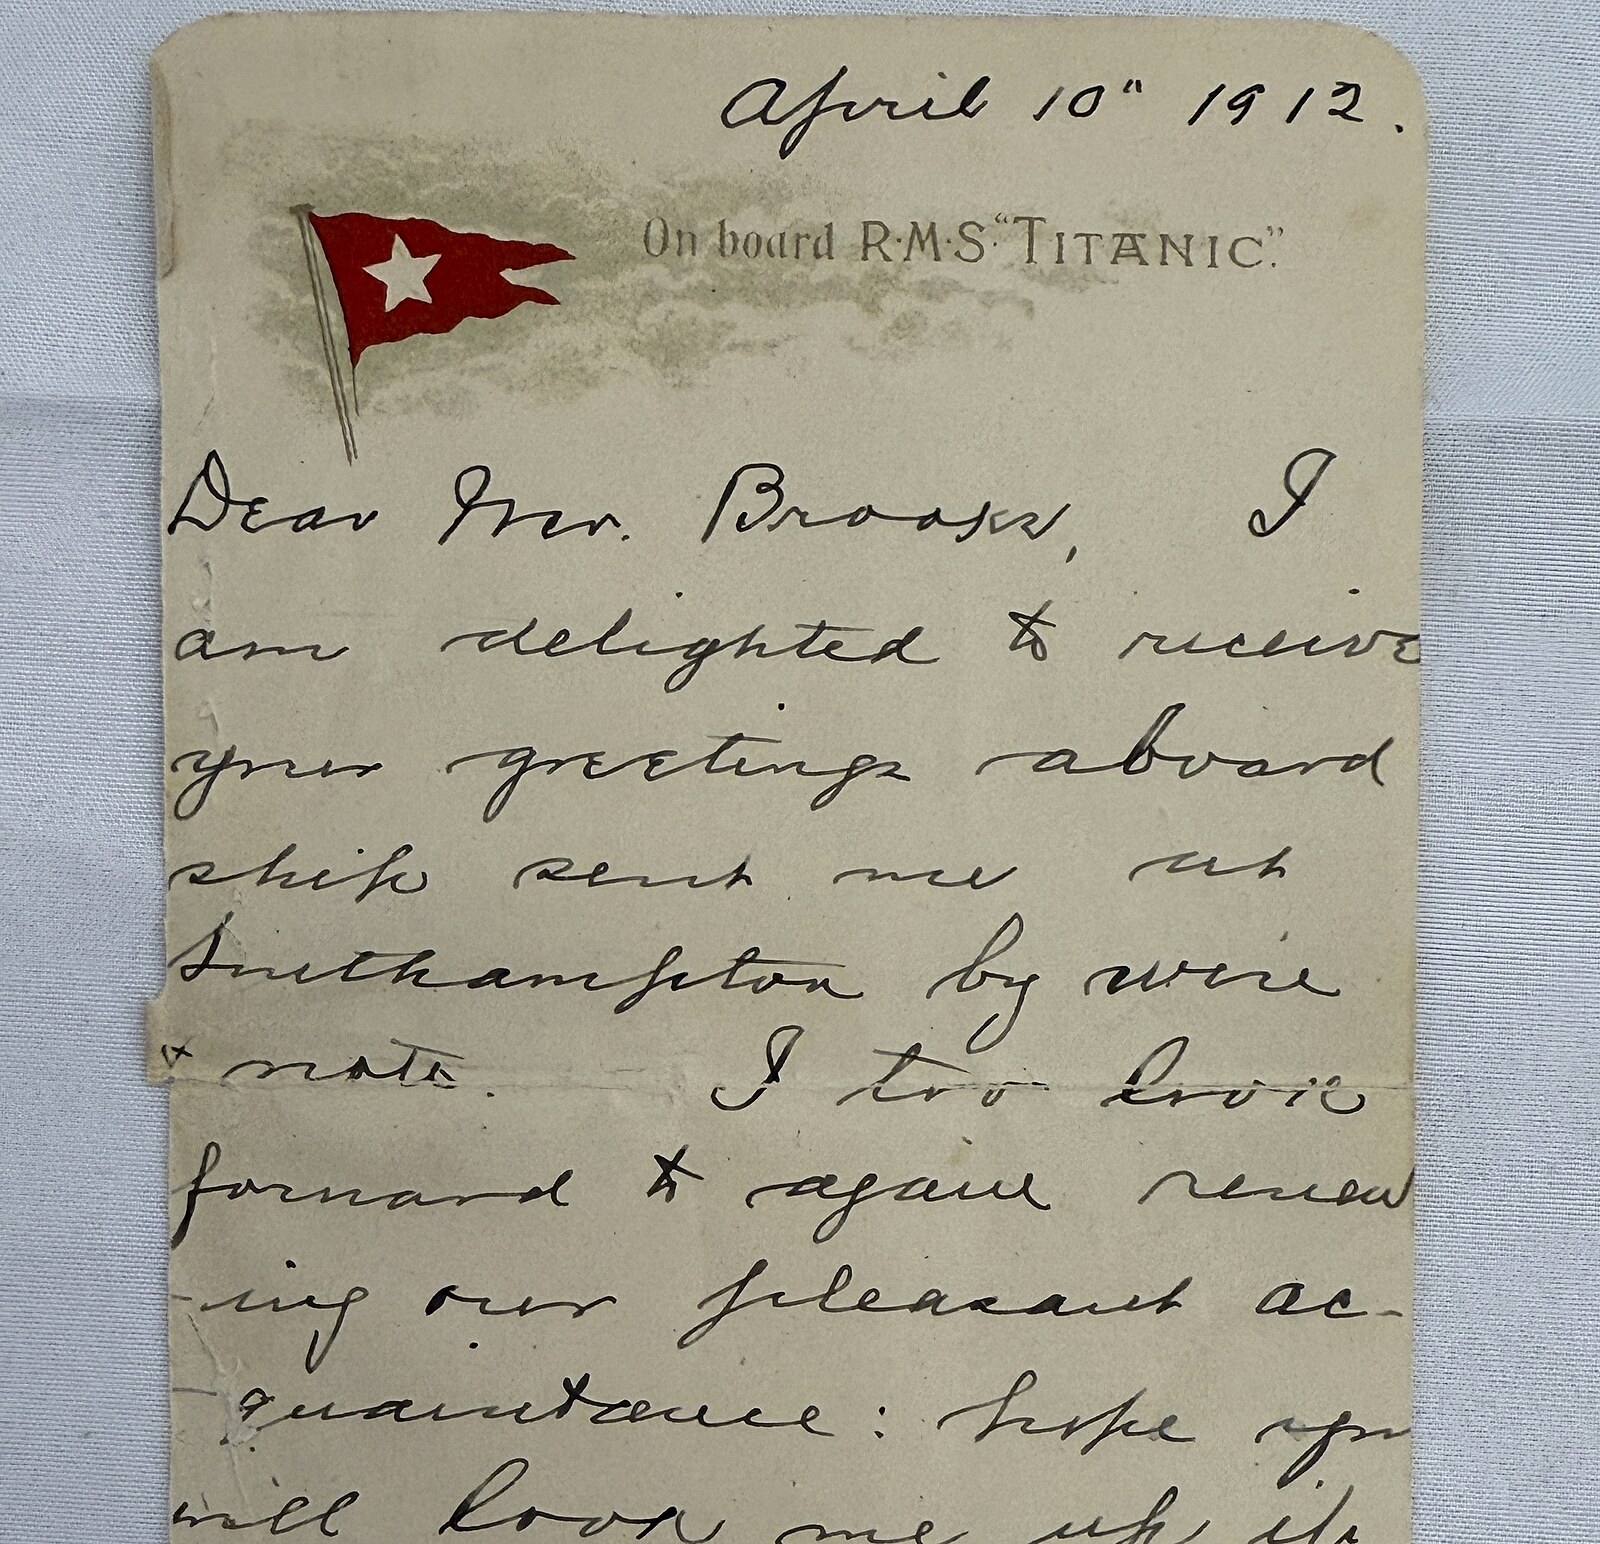 April 10" 1912.
On board R·M·S· "TITANIC."
Dear Mr. Brooks, I
am delighted to receive
your greetings aboard
ship sent me at
Southampton by wire
& note. I too look
forward to again renew
-ing our pleasant ac-
-quaintance: hope you
will look me up if